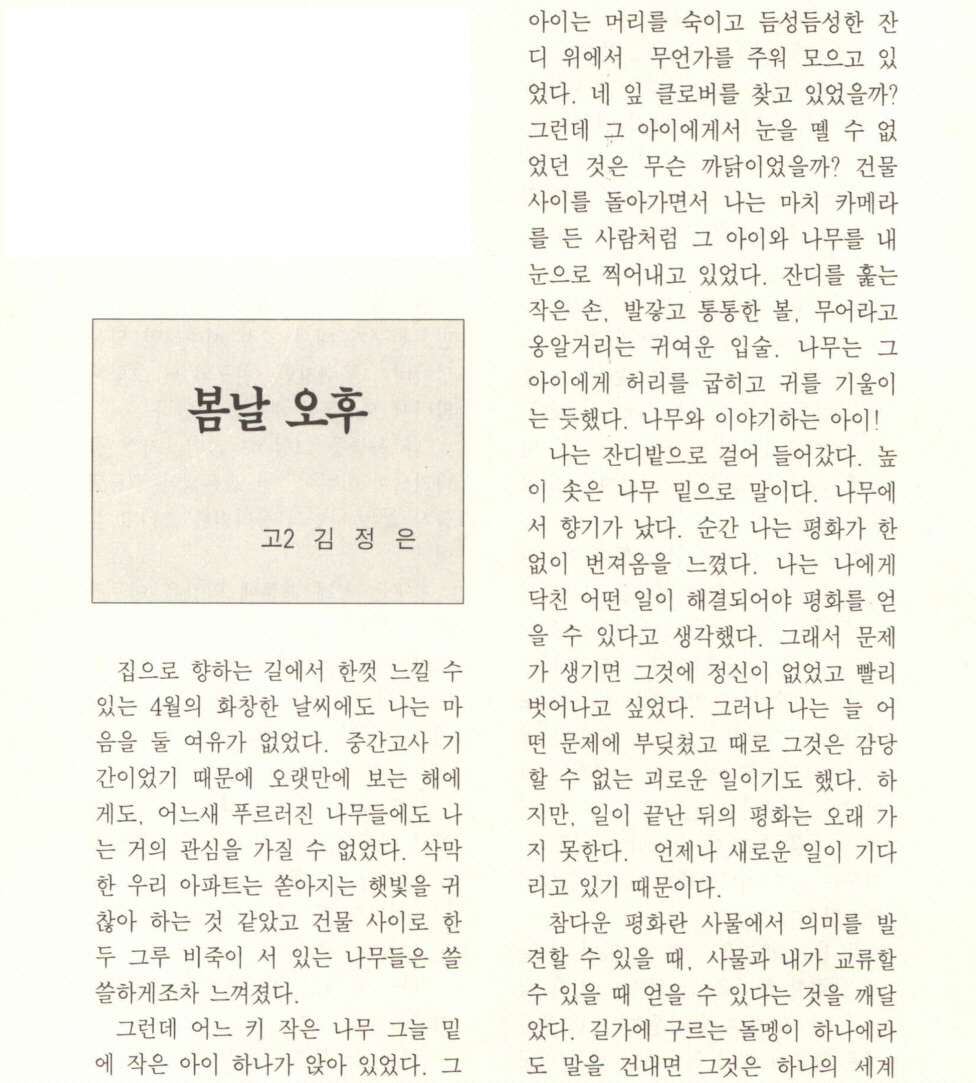 봄날 오후
고2 김 정 은
집으로 향하는 길에서 한껏 느낄 수
있는 4월의 화창한 날씨에도 나는 마
음을 둘 여유가 없었다. 중간고사 기
간이었기 때문에 오랫만에 보는 해에
게도, 어느새 푸르러진 나무들에도 나
는 거의 관심을 가질 수 없었다. 삭막
한 우리 아파트는 쏟아지는 햇빛을 귀
찮아 하는 것 같았고 건물 사이로 한
두 그루 비죽이 서 있는 나무들은 쓸
쓸하게조차 느껴졌다.
그런데 어느 키 작은 나무 그늘 밑
에 작은 아이 하나가 앉아 있었다. 그
아이는 머리를 숙이고 듬성듬성한 잔
디 위에서 무언가를 주워 모으고 있
었다. 네 잎 클로버를 찾고 있었을까?
그런데 그 아이에게서 눈을 뗄 수 없
었던 것은 무슨 까닭이었을까? 건물
사이를 돌아가면서 나는 마치 카메라
를 든 사람처럼 그 아이와 나무를 내
눈으로 찍어내고 있었다. 잔디를 훑는
작은 손, 발갛고 통통한 볼, 무어라고
옹알거리는 귀여운 입술. 나무는 그
아이에게 허리를 굽히고 귀를 기울이
는 듯했다. 나무와 이야기하는 아이!
나는 잔디밭으로 걸어 들어갔다. 높
이 솟은 나무 밑으로 말이다. 나무에
서 향기가 났다. 순간 나는 평화가 한
없이 번져옴을 느꼈다. 나는 나에게
닥친 어떤 일이 해결되어야 평화를 얻
을 수 있다고 생각했다. 그래서 문제
가 생기면 그것에 정신이 없었고 빨리
벗어나고 싶었다. 그러나 나는 늘 어
떤 문제에 부딪쳤고 때로 그것은 감당
할 수 없는 괴로운 일이기도 했다. 하
지만, 일이 끝난 뒤의 평화는 오래 가
지 못한다. 언제나 새로운 일이 기다
리고 있기 때문이다.
참다운 평화란 사물에서 의미를 발
견할 수 있을 때, 사물과 내가 교류할
수 있을 때 얻을 수 있다는 것을 깨달
았다. 길가에 구르는 돌멩이 하나에라
도 말을 건내면 그것은 하나의 세계